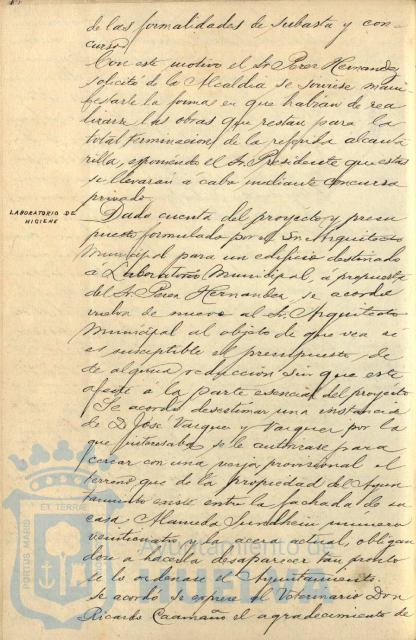 de las formalidades de subasta y con-
curso.
Con este motivo el Sr. Perez Hernandez
solicitó de la Alcaldia se sirviese mani-
festarle la forma en que habian de rea-
lizarse las obras que restan para la
total terminacion de la referida alcanta-
rilla, exponiendo el Sr. Presidente que estas
se llevarán á cabo mediante concurso
privado.
LABORATORIO DE
HIGIENE
Dada cuenta del proyecto y presu-
puesto formulado por el Sr. Arquitecto
Municipal para un edificio destinado
á Laboratorio Municipal, á propuesta
del Sr. Perez Hernandez, se acordó
vuelva de nuevo al Sr. Arquitecto
Municipal al objeto de que vea si
es susceptible el presupuesto, de
de alguna reduccion sin que este
afecte á la parte esencial del proyecto.
Se acordó desestimar una instancia
de D. José Vazquez y Vazquez por la
que interesaba se le autorizase para
cercar con una verja provisional el
terreno que de la propiedad del Ayun-
tamiento existe entre la fachada de su
casa Alameda Sundheim numero
veinticuatro y la acera actual, obligan-
dose a hacerla desaparecer tan pronto
se lo ordenase el Ayuntamiento.
Se acordó se exprese al Veterinario Don
Ricardo Caamaño el agradecimiento de
PORTUS MARIS ET TERRAE
Ayuntamiento de
HUELVA